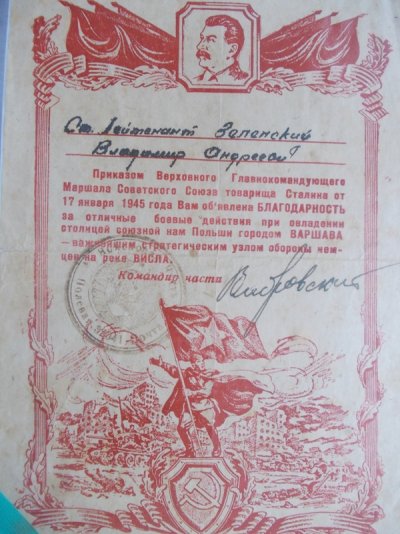 Ст. Лейтенант Запанский
Владимир Андреевич
Приказом Верховного Главнокомандующего
Маршала Советского Союза товарища Сталина от
17 января 1945 года Вам об'явлена БЛАГОДАРНОСТЬ
за отличные боевые действия при овладении
столицей союзной нам Польши городом ВАРШАВА
—важнейшим стратегическим узлом обороны нем-
цев на реке ВИСЛА.
Командир части